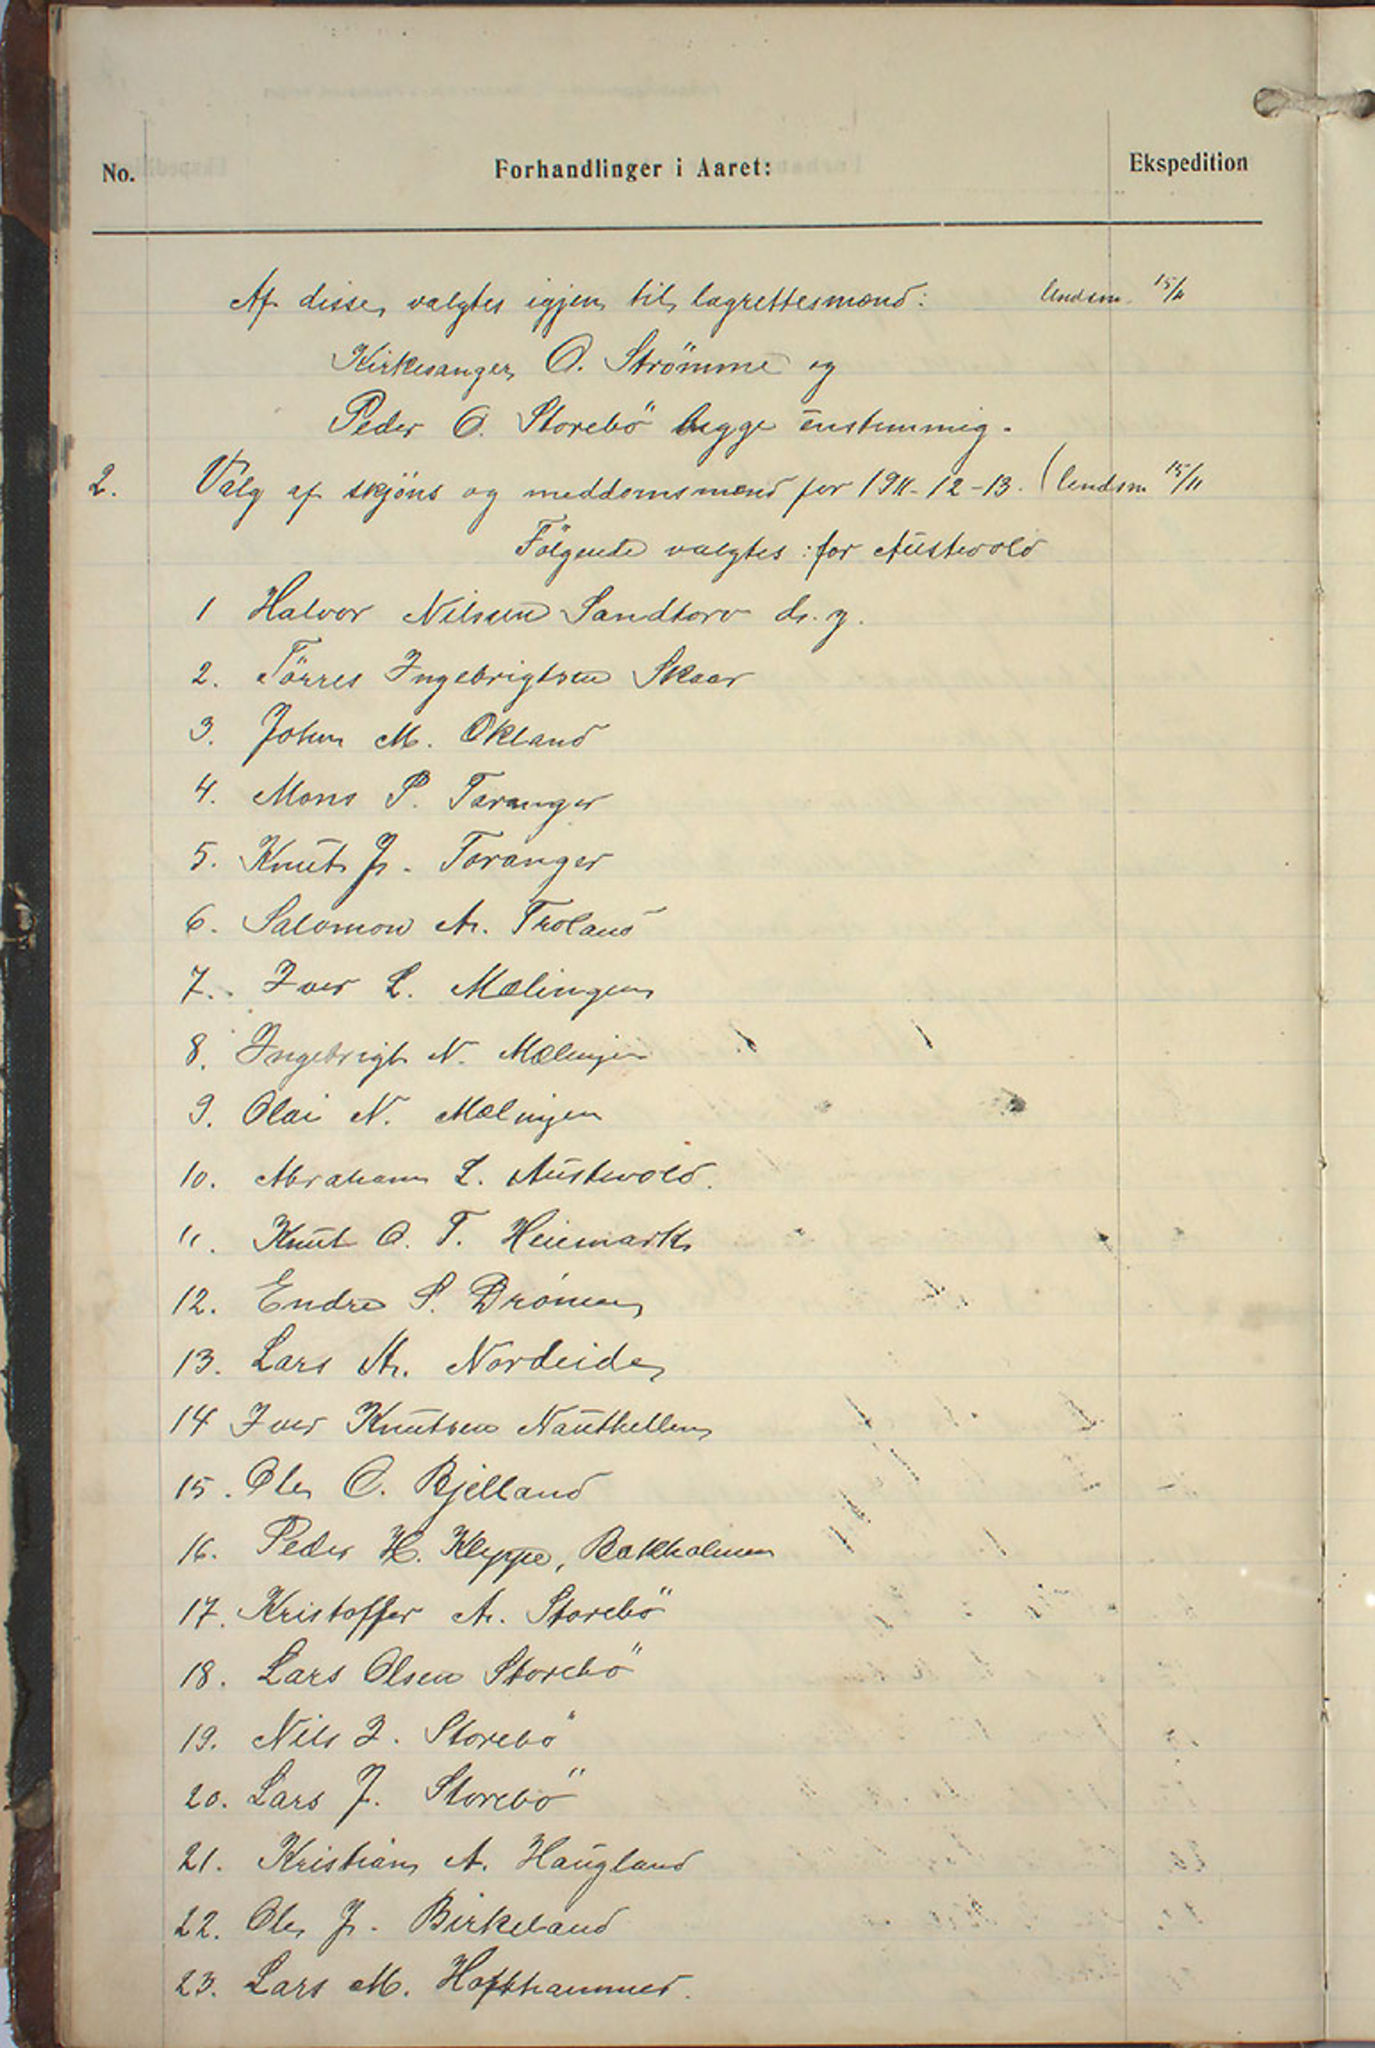 No. Forhandlinger i Aaret: Ekspedition
Af disse valgtes igjen til lagrettesmænd: lendsm. 15/11
Kirkesanger O. Strömme og
Peder O. Storebö begge enstemmig.
2. Valg af skjöns og meddomsmænd for 1911-12-13. (lendsm 15/11
Følgende valgtes: for Austevold
1 Halvor Nilsen Sandtorv d. y.
2. Törres Ingebrigtsen Skaar
3. Johan M. Økland
4. Mons P. Taranger
5. Knut J. Taranger
6. Salomon A. Troland
7. Iver L. Mælingen
8. Ingebrigt N. Mælingen
9. Olai N. Mælingen
10. Abraham L. Austevold.
11. Knut O. T. Heiemark
12. Endre S. Drönen
13. Lars A. Nordeide
14 Iver Knutsen Nauthellen
15. Ole O. Bjelland
16. Peder H. Kleppe, Bakholmen
17. Kristoffer A. Storebö
18. Lars Olsen Storebö
19. Nils I. Storebö
20. Lars J. Storebö
21. Kristian A. Haugland
22. Ole J. Birkeland
23. Lars M. Hofthammer.